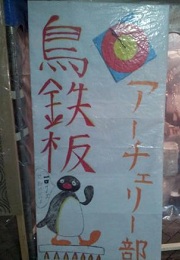 鳥鉄板
アーチェリー部